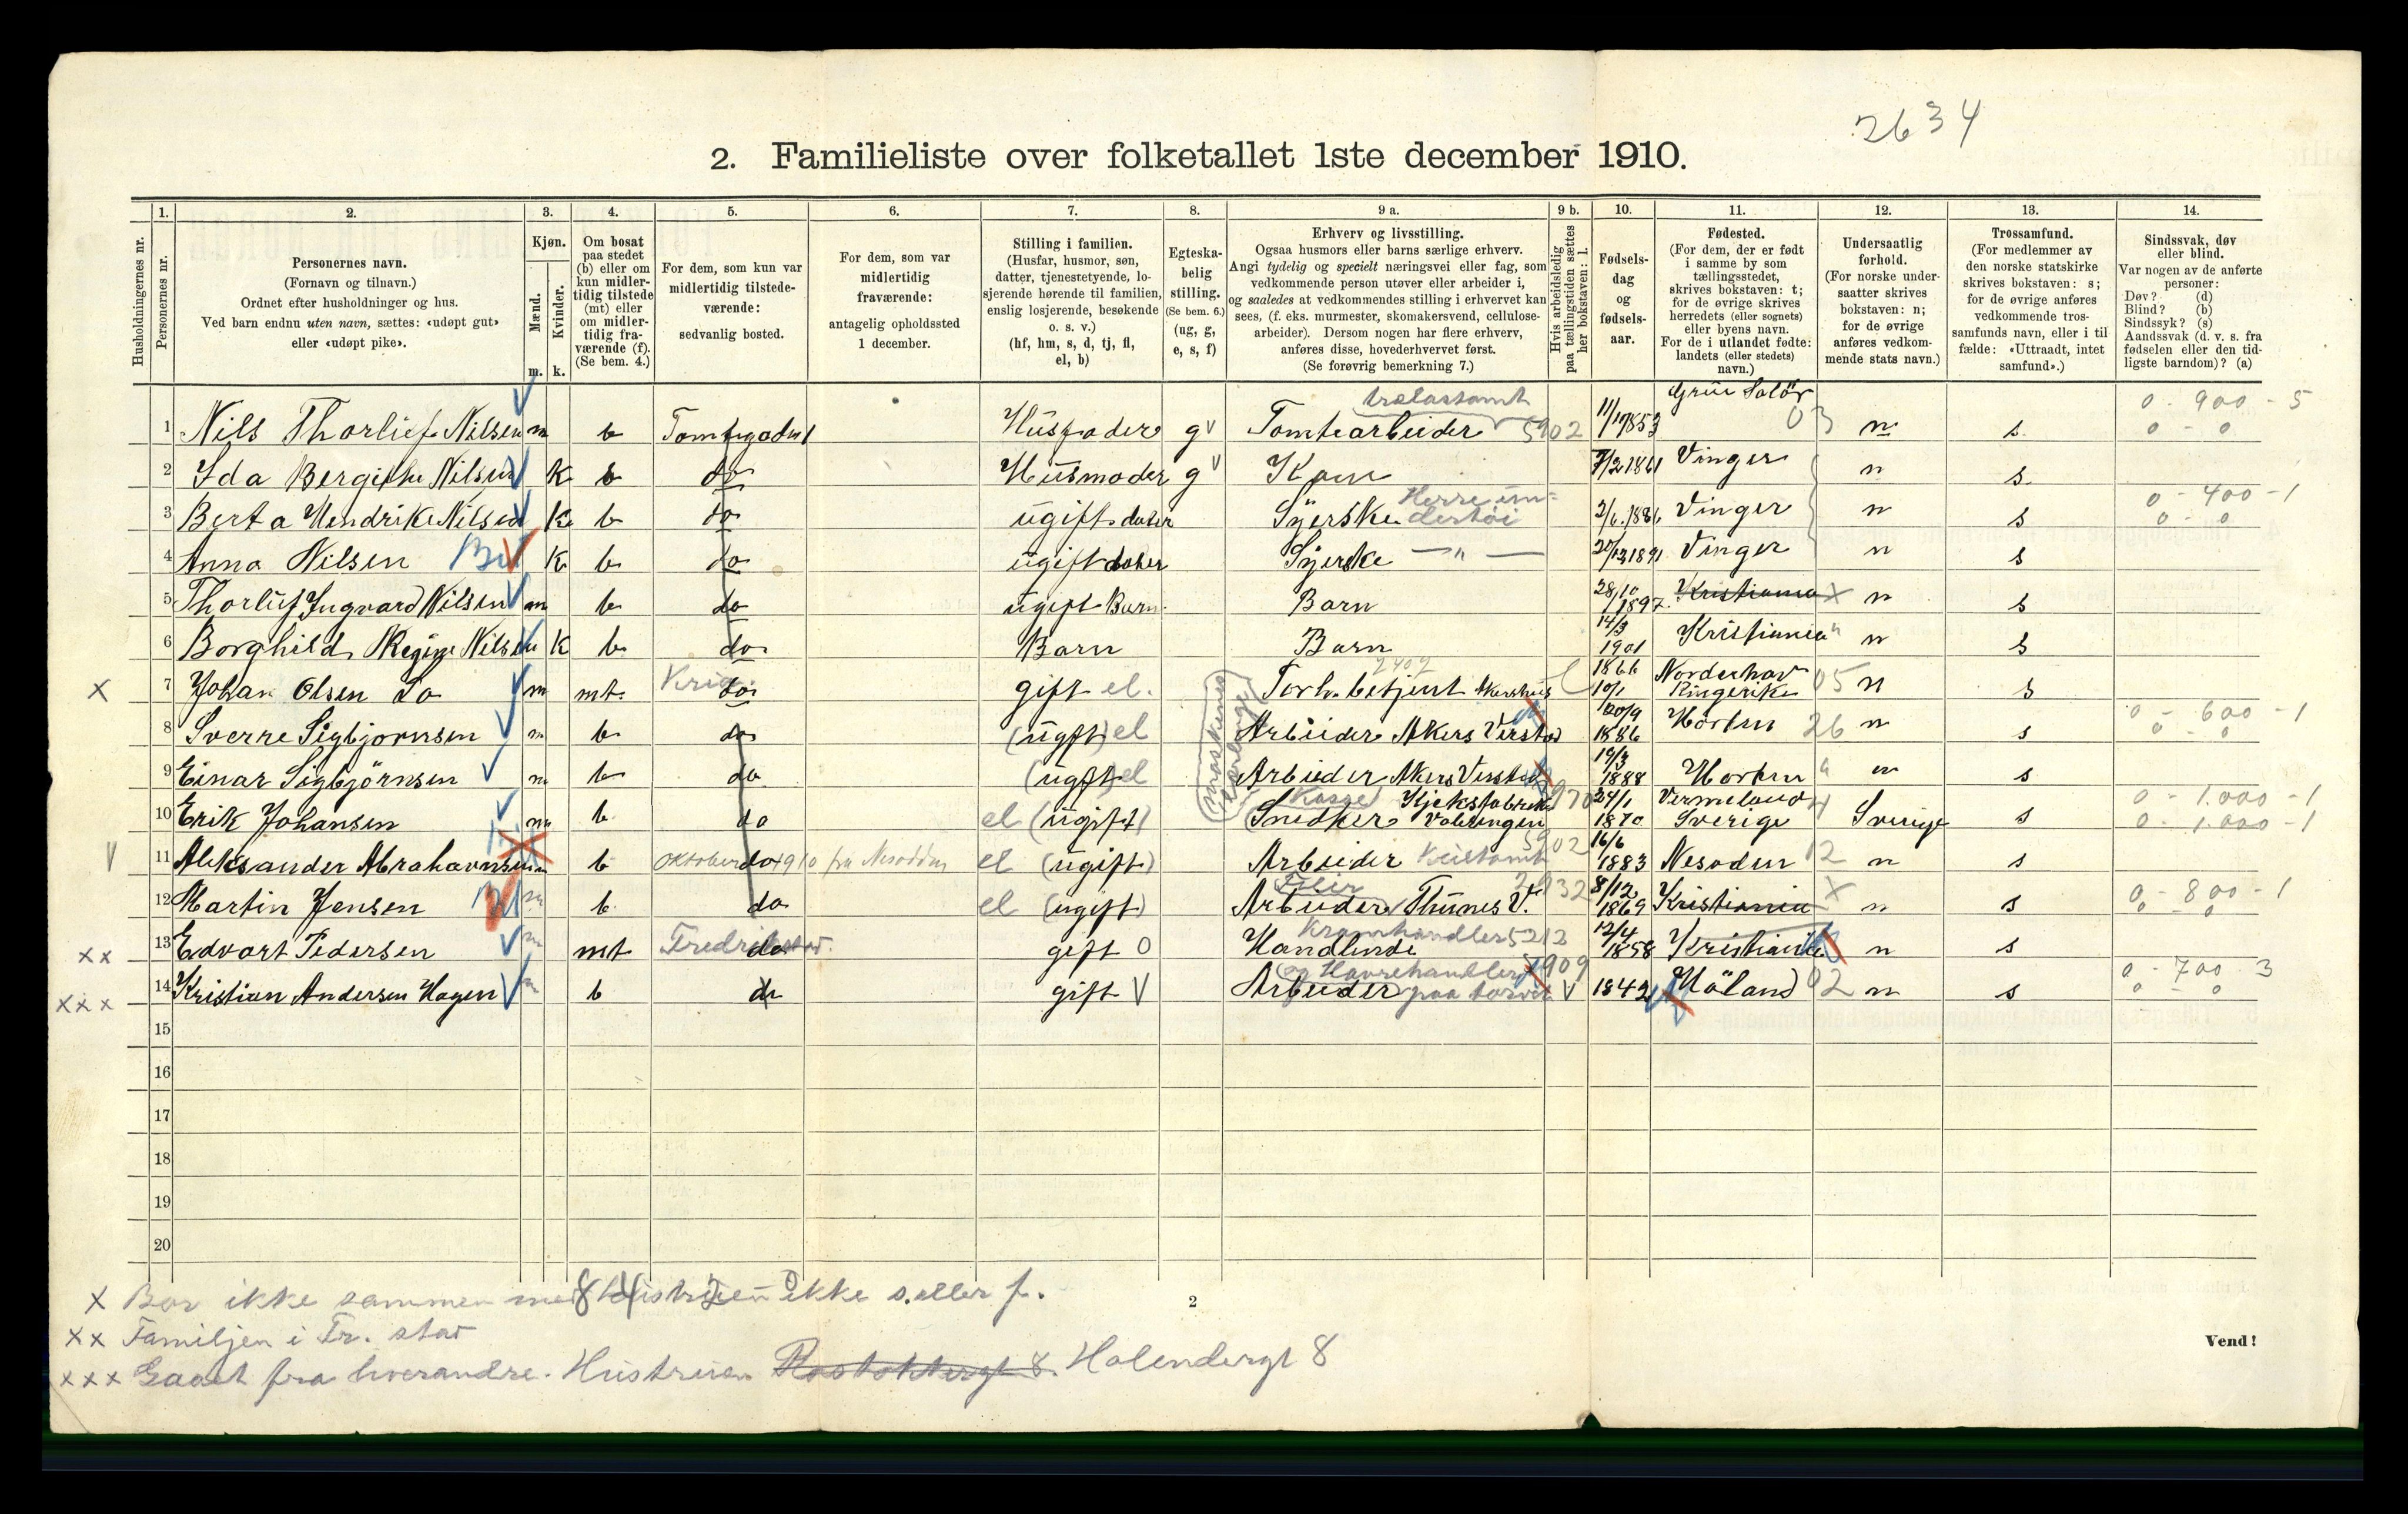 2634
2. Familieliste over folketallet 1ste december 1910.
Husholdningernes nr.
1. Personernes nr.
2. Personernes navn.
(Fornavn og tilnavn.)
Ordnet efter husholdninger og hus.
Ved barn endnu uten navn, sættes: «udøpt gut»
eller «udøpt pike».
3. Kjøn.
Mænd. m.
Kvinder. k.
4. Om bosat
paa stedet
(b) eller om
kun midler-
tidig tilstede
(mt) eller
om midler-
tidig fra-
værende (f).
(Se bem. 4.)
5. For dem, som kun var
midlertidig tilstede-
værende:
sedvanlig bosted.
6. For dem, som var
midlertidig
fraværende:
antagelig opholdssted
1 december.
7. Stilling i familien.
(Husfar, husmor, søn,
datter, tjenestetyende, lo-
sjerende hørende til familien,
enslig losjerende, besøkende
o. s. v.)
(hf, hm, s, d, tj, fl,
el, b)
8. Egteska-
belig
stilling.
(Se bem. 6.)
(ug, g,
e, s, f)
9 a. Erhverv og livsstilling.
Ogsaa husmors eller barns særlige erhverv.
Angi tydelig og specielt næringsvei eller fag, som
vedkommende person utøver eller arbeider i,
og saaledes at vedkommendes stilling i erhvervet kan
sees, (f. eks. murmester, skomakersvend, cellulose-
arbeider). Dersom nogen har flere erhverv,
anføres disse, hovederhvervet først.
(Se forøvrig bemerkning 7.)
9 b. Hvis arbeidsledig
paa tællingstiden sættes
her bokstaven: l.
10. Fødsels-
dag
og
fødsels-
aar.
11. Fødested.
(For dem, der er født
i samme by som
tællingsstedet,
skrives bokstaven: t;
for de øvrige skrives
herredets (eller sognets)
eller byens navn.
For de i utlandet fødte:
landets (eller stedets)
navn.)
12. Undersaatlig
forhold.
(For norske under-
saatter skrives
bokstaven: n;
for de øvrige
anføres vedkom-
mende stats navn.)
13. Trossamfund.
(For medlemmer av
den norske statskirke
skrives bokstaven: s;
for de øvrige anføres
vedkommende tros-
samfunds navn, eller i til
fælde: «Uttraadt, intet
samfund».)
14. Sindssvak, døv
eller blind.
Var nogen av de anførte
personer:
Døv? (d)
Blind? (b)
Sindssyk? (s)
Aandssvak (d. v. s. fra
fødselen eller den tid-
ligste barndom)? (a)
trælastomt Grue Solør 0 - 900 - 5
1 Nils Thorlief Nilsen m b Tomtegaden 1 Husfader g v Tomtearbeider 5902 11/1 1853 03 n s 0 - 0
2 Ida Bergithe Nilsen K b do Husmoder g v Kone 7/2 1861 Vinger n s
Herreun= 0 - 400 - 1
3 Berta Hendrike Nilsen K b do ugift dater Syerske dertøi 2/6. 1886 Vinger n s 0 - 0
4 Anna Nilsen K b do ugift dater Syerske — " — 20/12 1891 Vinger n s
5 Thorluf Ingvard Nilsen m b do ugift Barn Barn 28/10 1897 Kristiania x n s
6 Borghild Regine Nilsen K b do Barn Barn 14/3 1901 Kristiania n s
2402
x 7 Johan Olsen do m mt. Kria. do gift el. Torh. betjent Akershus l 1866 10/1 Norderhov Ringerike 05 n s
(maskinms
8 Sverre Sigbjørnsen m b do (ugift) el Arbeider Akers Verstad 20/9 1886 Horten 26 n s 0 - 600 - 1 0 - 0
9 Einar Sigbjörnsen m b do (ugift) el Arbeider Akers Verstad 19/3 1888 Horten " n s
Kasse Kjeksfabrik
10 Erik Johansen m b do el (ugift) Snedker Volerengen 24/1 1870 Vermeland Sverige Sverige s 0 - 1.000 - 1 0 - 1.000 - 1
V 11 Aleksander Abrahamsen m b Oktober do 1910 fra Nesodden el (ugift) Arbeider 5902 16/6 1883 Nesoden 12 n s
Filer
12 Martin Jensen m b do el (ugift) Arbeider Thunes V. 2932 8/12 1869 Kristiania x n s 0 - 800 - 1 0 - 0
Kramhandler 5212
xx 13 Edvart Pedersen m mt Fredrikstad. do gift 0 Handlende 12/4 1858 Kristiania n s
og Havrehandler 5909
xxx 14 Kristian Andersen Hagen m b do gift V Arbeider paa torvet V 1842 Höland 02 n s 0 - 700 - 3 0 - 0
15
16
17
18
19
20
x Bor ikke sammen med Histruen ikke s. eller f.
8 4 2 0
2
xx Familjen i Fr. stad
Vend!
xxx Gaaet fra hverandre. Histruen Rostokkergt 8. Holendergt 8